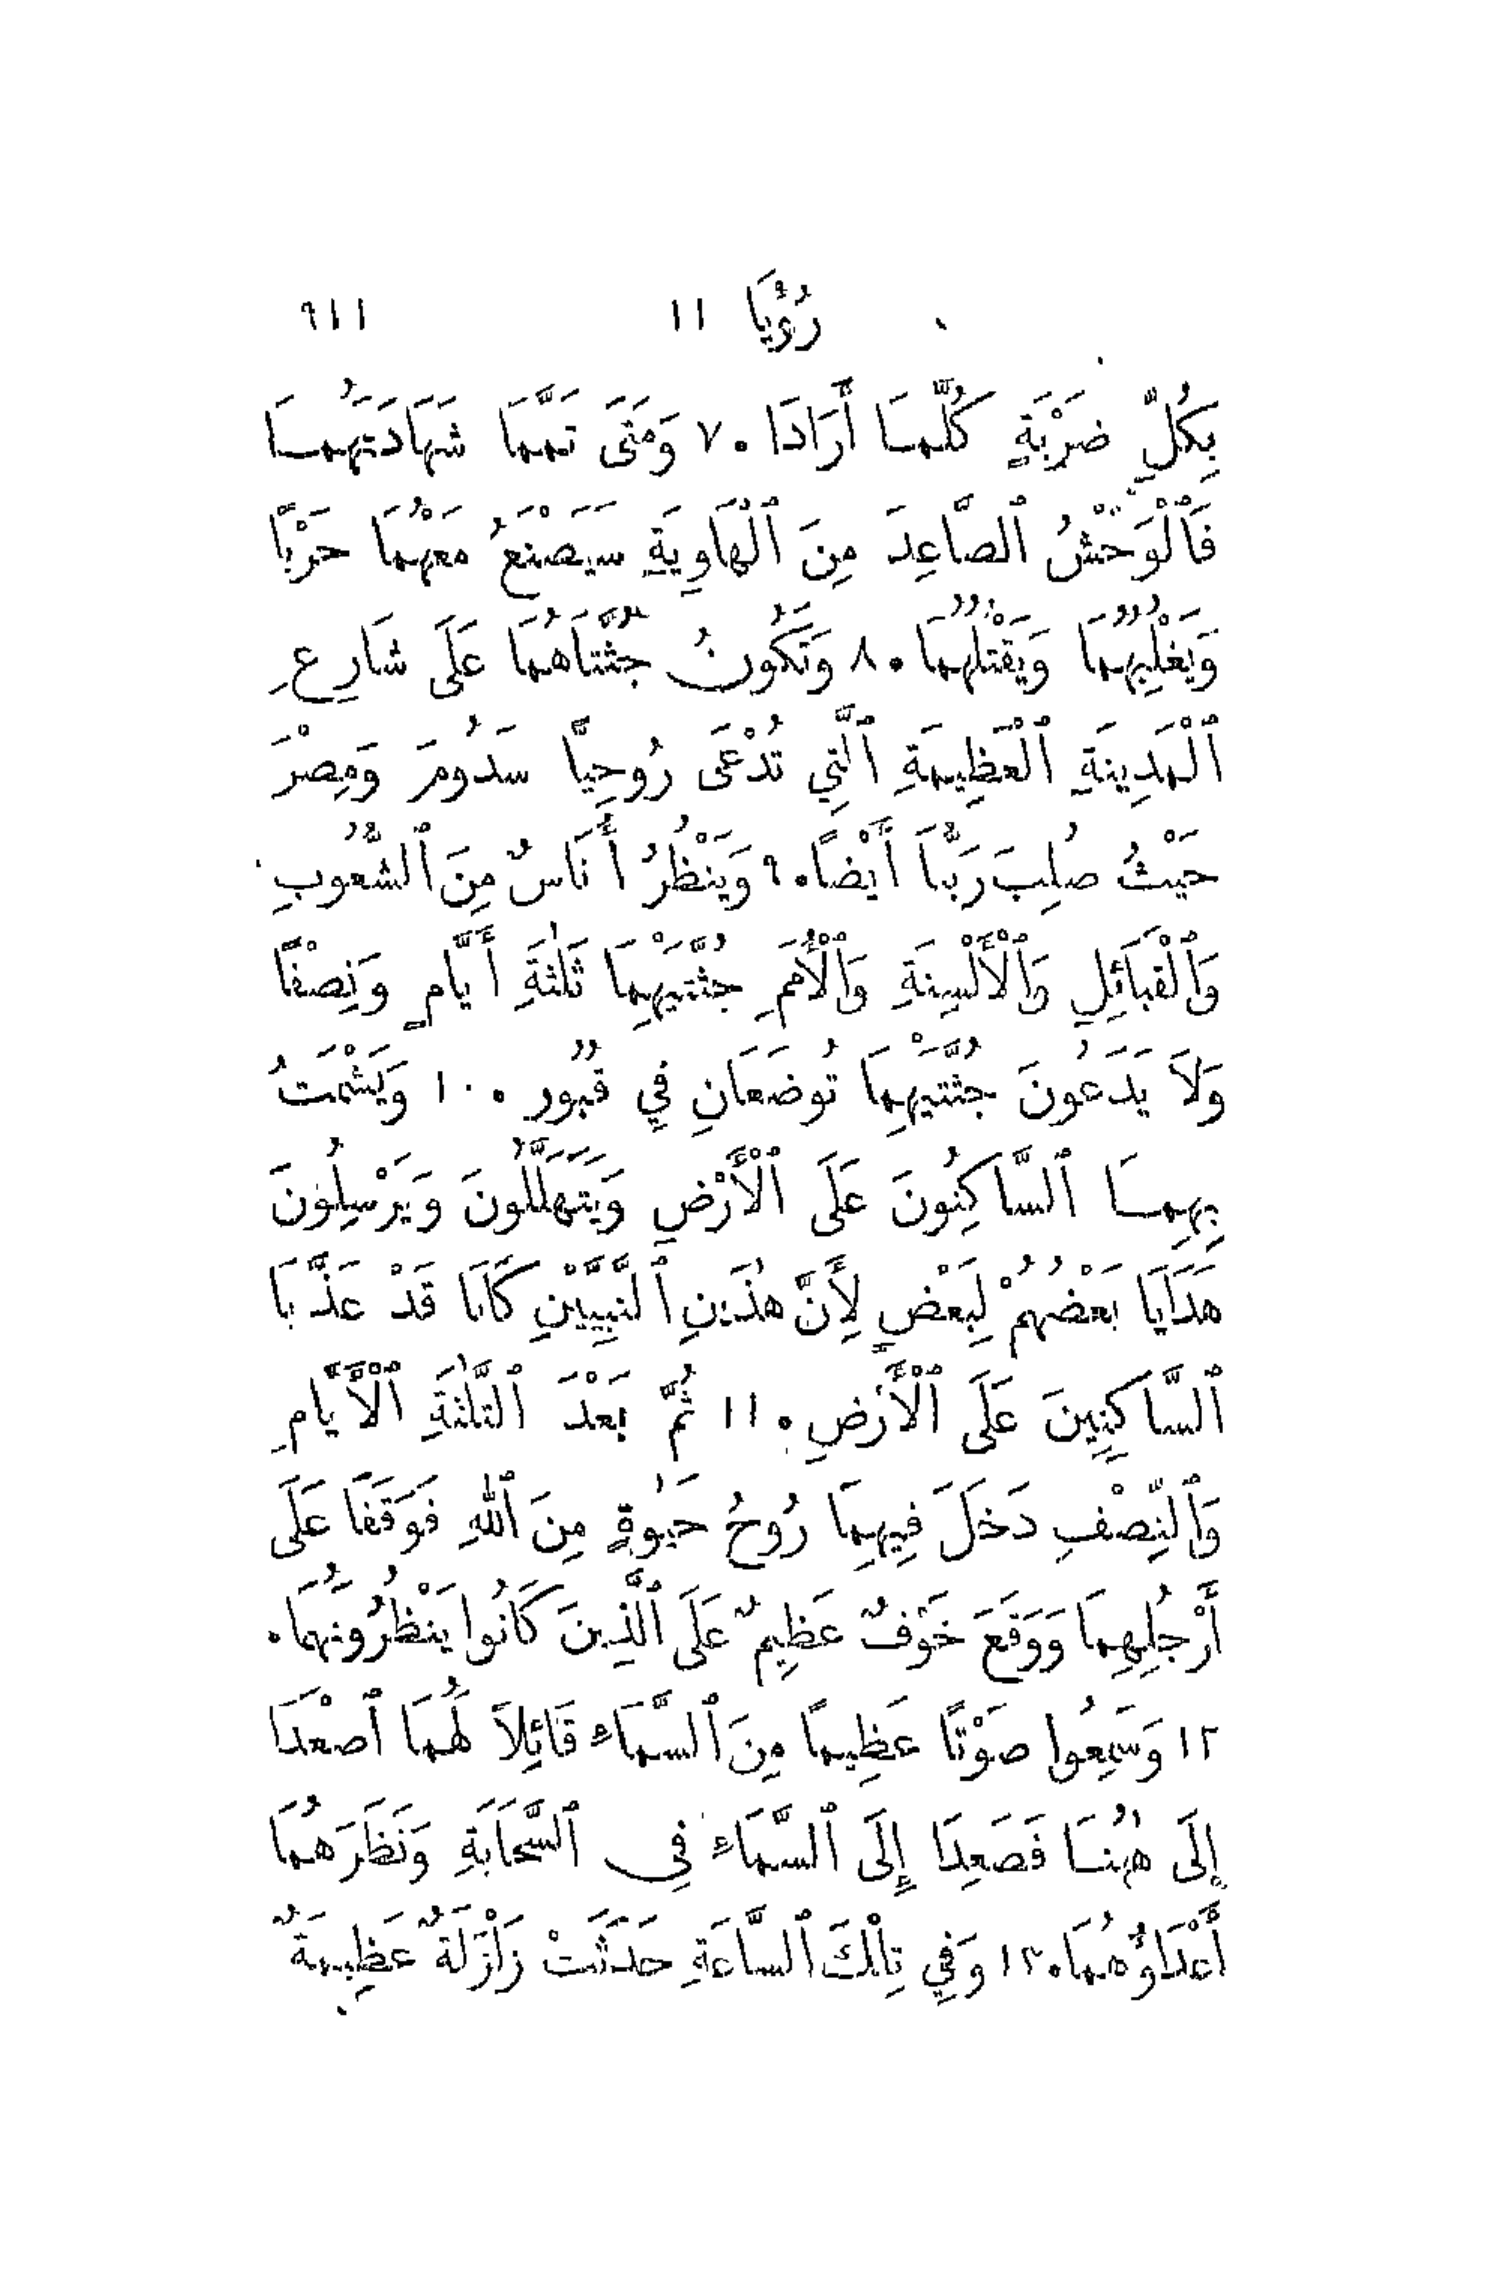 رُؤْيَا ١١ ٩١١
بِكُلِّ ضَرْبَةٍ كُلَّمَا أَرَادَا ٠ ٧ وَمَتَى تَمَّمَا شَهَادَتَهُمَا
فَٱلْوَحْشُ ٱلصَّاعِدَ مِنَ ٱلْهَاوِيَةِ سَيَصْنَعُ مَعَهُمَا حَرْبًا
وَيَغْلِبُهُمَا وَيَقْتُلُهُمَا ٠ ٨ وَتَكُونُ جُثَّتَاهُمَا عَلَى شَارِعِ
ٱلْمَدِينَةِ ٱلْعَظِيمَةِ ٱلَّتِي تُدْعَى رُوحِيًّا سَدُومَ وَمِصْرَ
حَيْثُ صُلِبَ رَبُّنَا أَيْضًا ٠ ٩ وَيَنْظُرُ أُنَاسٌ مِنَ ٱلشُّعُوبِ
وَٱلْقَبَائِلِ وَٱلْأَلْسِنَةِ وَٱلْأُمَمِ جُثَّتَيْهِمَا ثَلٰثَةَ أَيَّامٍ وَنِصْفًا
وَلَا يَدَعُونَ جُثَّتَيْهِمَا تُوضَعَانِ فِي قُبُورٍ ٠ ١٠ وَيَشْمَتُ
بِهِمَا ٱلسَّاكِنُونَ عَلَى ٱلْأَرْضِ وَيَتَهَلَّلُونَ وَيَرْسِلُونَ
هَدَايَا بَعْضُهُمْ لِبَعْضٍ لِأَنَّ هٰذَيْنِ ٱلنَّبِيَّيْنِ كَانَا قَدْ عَذَّبَا
ٱلسَّاكِنِينَ عَلَى ٱلْأَرْضِ ٠ ١١ ثُمَّ بَعْدَ ٱلثَّلٰثَةِ ٱلْأَيَّامِ
وَٱلنِّصْفِ دَخَلَ فِيهِمَا رُوحُ حَيٰوةٍ مِنَ ٱللهِ فَوَقَفَا عَلَى
أَرْجُلِهِمَا وَوَقَعَ خَوْفٌ عَظِيمٌ عَلَى ٱلَّذِينَ كَانُوا يَنْظُرُونَهُمَا ٠
١٢ وَسَمِعُوا صَوْتًا عَظِيمًا مِنَ ٱلسَّمَاءِ قَائِلًا لَهُمَا ٱصْعَدَا
إِلَى هٰهُنَا فَصَعِدَا إِلَى ٱلسَّمَاءِ فِي ٱلسَّحَابَةِ وَنَظَرَهُمَا
أَعْدَاؤُهُمَا ٠ ١٣ وَفِي تِلْكَ ٱلسَّاعَةِ حَدَثَتْ زَلْزَلَةٌ عَظِيمَةٌ